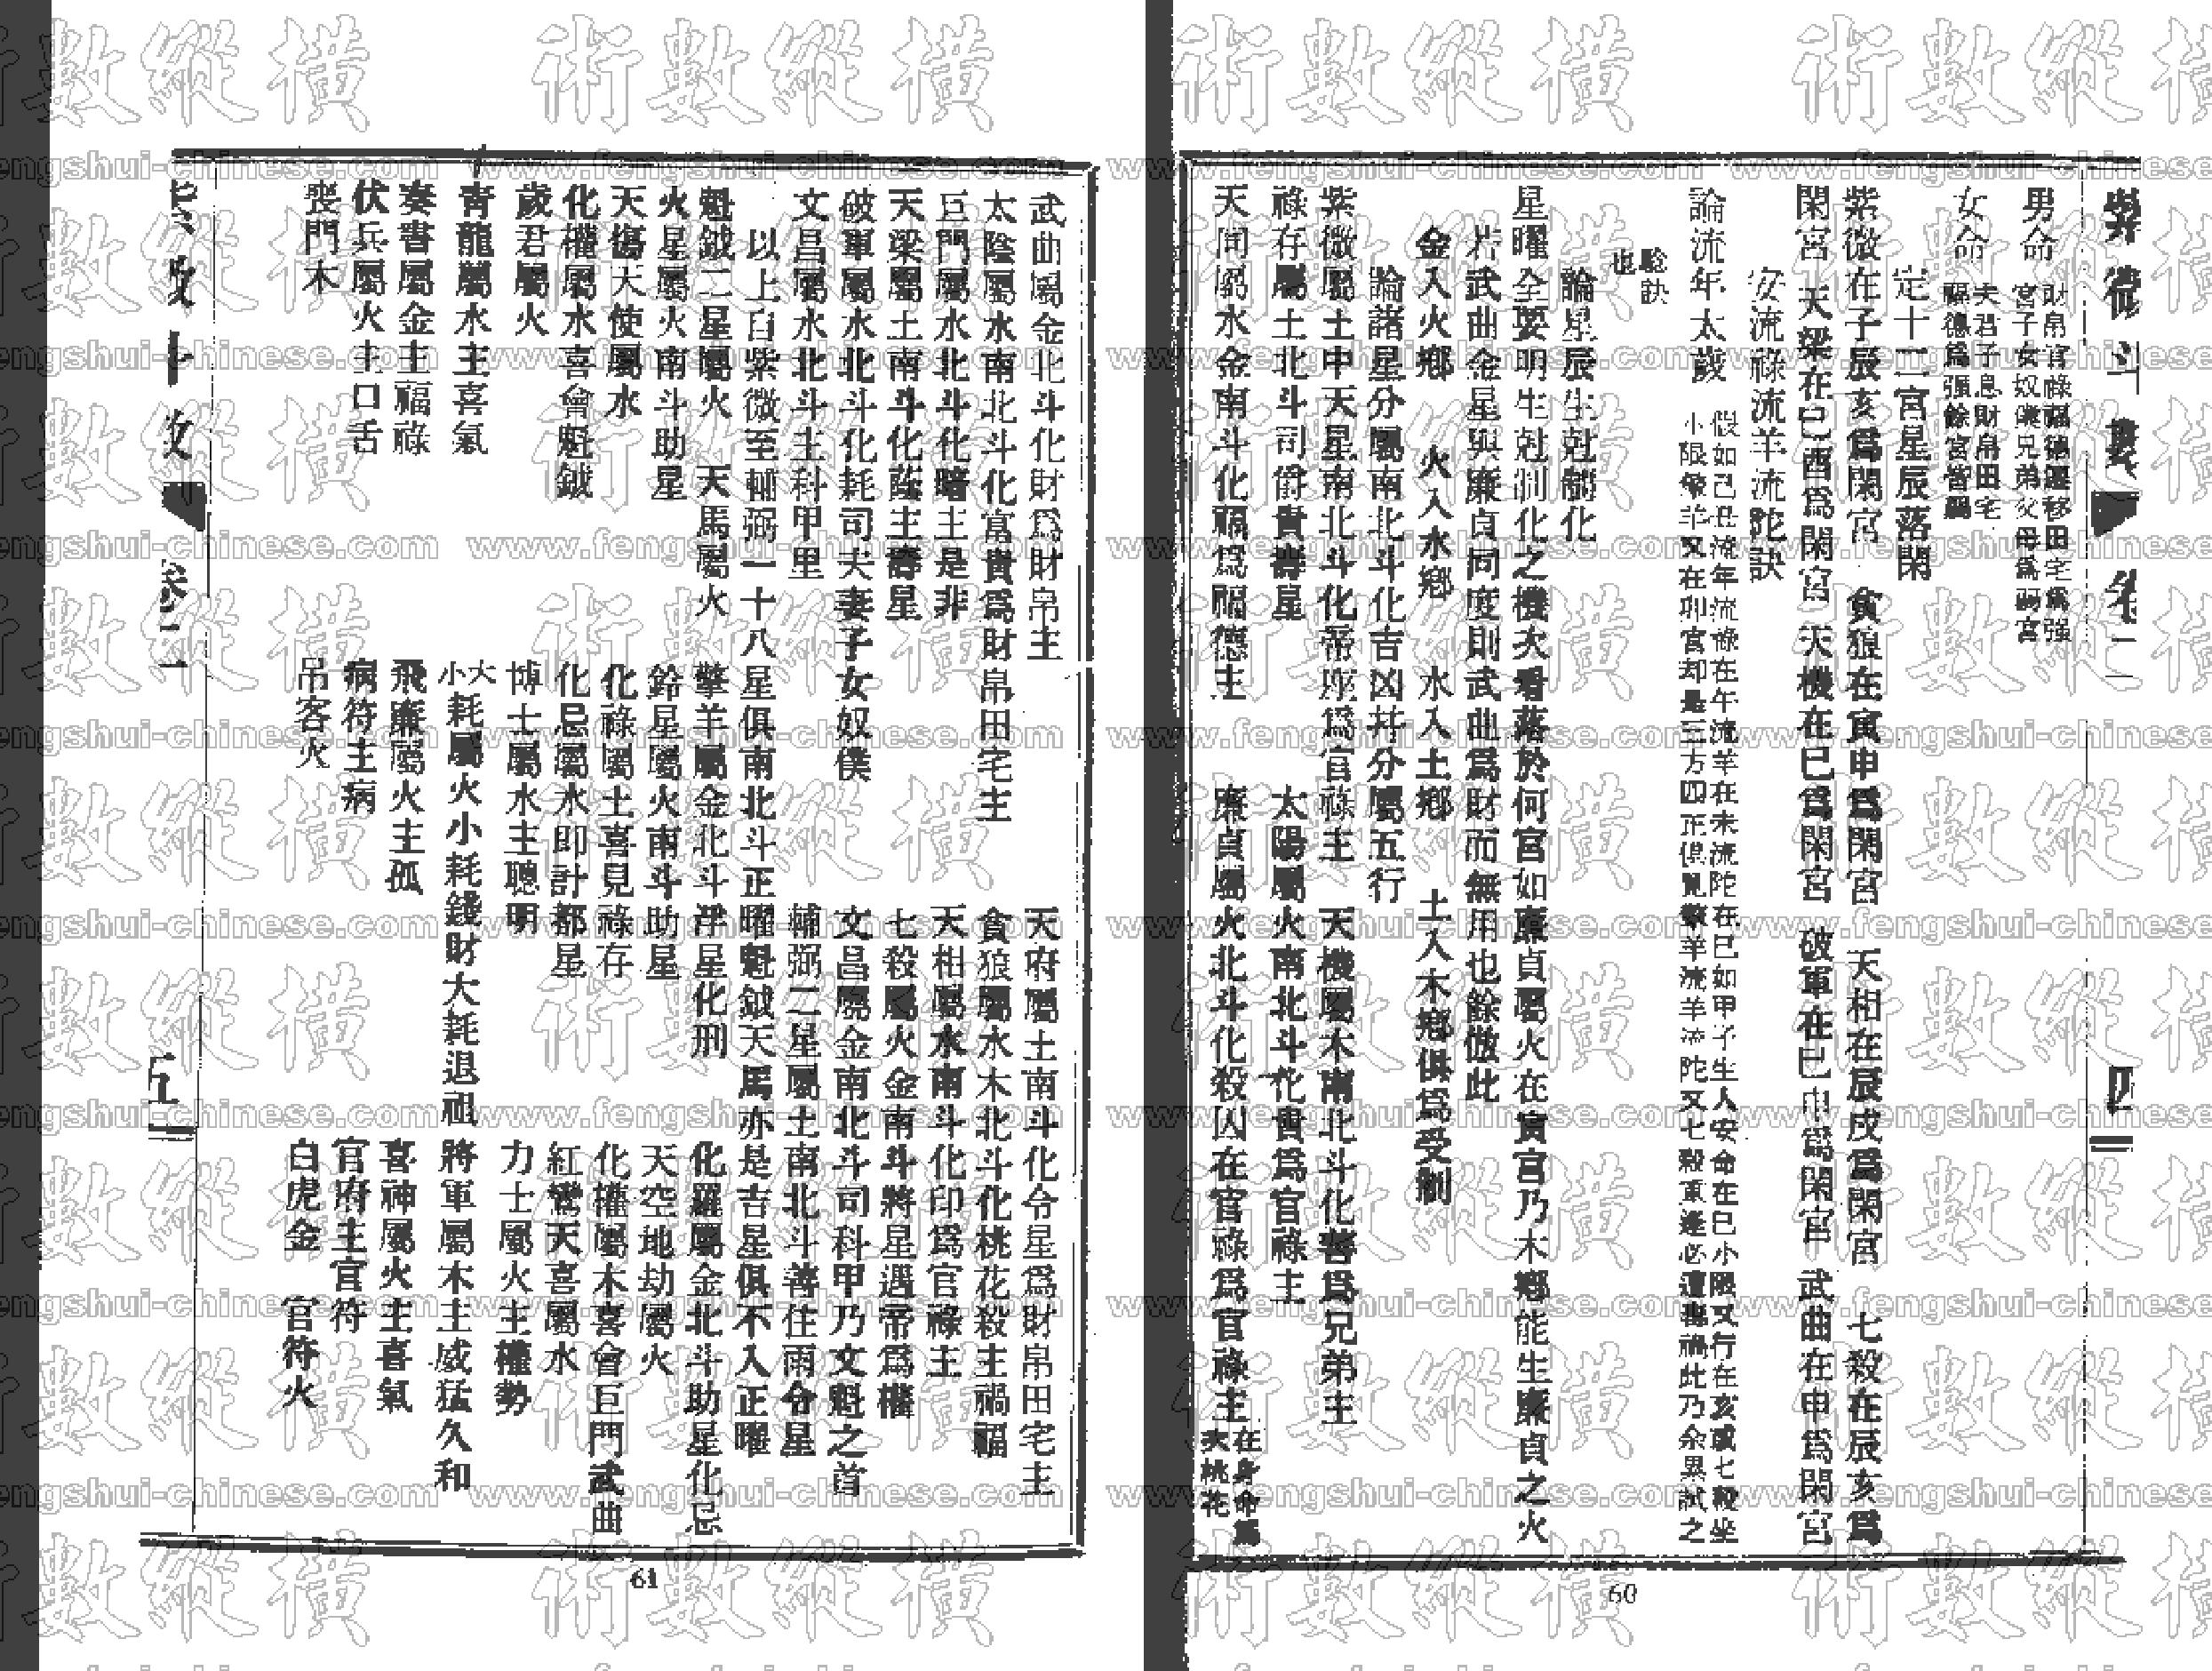 男命 財帛官祿福德遷移田宅爲强
宮子女奴僕兄弟父母爲弱宮
女命 夫君子息財帛田宅
福德爲强餘宮皆弱
定十二宮星辰落閑
紫微在子辰亥爲閑宮 貪狼在寅申爲閑宮 天相在辰戌爲閑宮 七殺在辰亥爲
閑宮 天梁在巳酉爲閑宮 天機在巳爲閑宮 破軍在巳申爲閑宮 武曲在申爲閑宮
安流祿流羊流陀訣
論流年太歲 假如己丑流年流祿在午流羊在未流陀在巳如甲子生人安命在巳小限又行在亥或七殺坐
小限擎羊又在卯宮却是三方四正俱見擎羊流羊流陀又七殺重逢必遭凶禍此乃余異試之
驗訣
也
論星辰生尅制化
星曜全要明生尅制化之機次看落於何宮如廉貞屬火在寅宮乃木鄉能生廉貞之火
若武曲金星與廉貞同度則武曲爲財而無用也餘倣此
金入火鄉 火入水鄉 水入土鄉 土入木鄉俱爲受制
論諸星分屬南北斗化吉凶幷分屬五行
紫微屬土中天星南北斗化帝座爲官祿主 天機屬木南北斗化善爲兄弟主
祿存屬土北斗司爵貴壽星 太陽屬火南北斗化貴爲官祿主
天同屬水金南斗化福爲福德主 廉貞屬火北斗化殺囚在官祿爲官祿主 在身命爲
次桃花
四
60
武曲屬金北斗化財爲財帛主 天府屬土南斗化令星爲財帛田宅主
太陰屬水南北斗化富貴爲財帛田宅主 貪狼屬水木北斗化桃花殺主禍福
巨門屬水北斗化暗主是非 天相屬水南斗化印爲官祿主
天梁屬土南斗化蔭主壽星 七殺屬火金南斗將星遇帝爲權
破軍屬水北斗化耗司夫妻子女奴僕 文昌屬金南北斗司科甲乃文魁之首
文昌屬水北斗主科甲里 輔弼二星屬土南北斗善住雨令星
以上自紫微至輔弼一十八星俱南北斗正曜魁鉞天馬亦是吉星俱不入正曜
魁鉞二星屬火 天馬屬火 擎羊屬金北斗浮星化刑 化羅屬金北斗助星化忌
火星屬火南斗助星 鈴星屬火南斗助星 天空地劫屬火
天傷天使屬水 化祿屬土喜見祿存 化權屬木喜會巨門武曲
化權屬水喜會魁鉞 化忌屬水即計都星 紅鸞天喜屬水
歲君屬火 博士屬水主聰明 力士屬火主權勢
青龍屬水主喜氣 大小耗屬火小耗錢財大耗退祖 將軍屬木主威猛久和
奏書屬金主福祿 飛廉屬火主孤 喜神屬火主喜氣
伏兵屬火主口舌 病符主病 官府主官符
喪門木 吊客火 白虎金 官符火
卷二
五
61
www.fengshui-chinese.com
術數縱橫